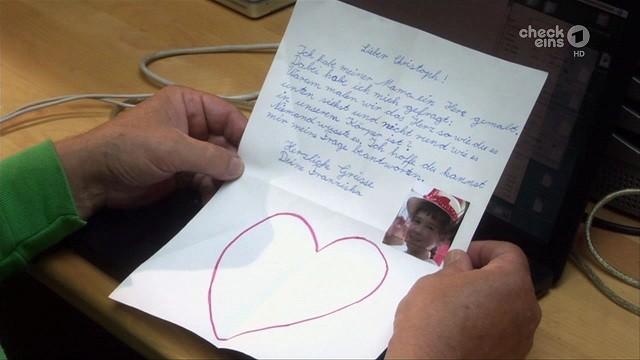 check
eins
1
HD
Lieber Christoph!
Ich habe meiner Mama ein Herz gemalt.
Dabei hab ich mich gefragt:
Warum malen wir das Herz so wie du es
unten siehst und nicht rund wie es
in unserem Körper ist?
Niemand wusste es. Ich hoffe du kannst
mir meine Frage beantworten.
Herzliche Grüsse
Deine Franziska